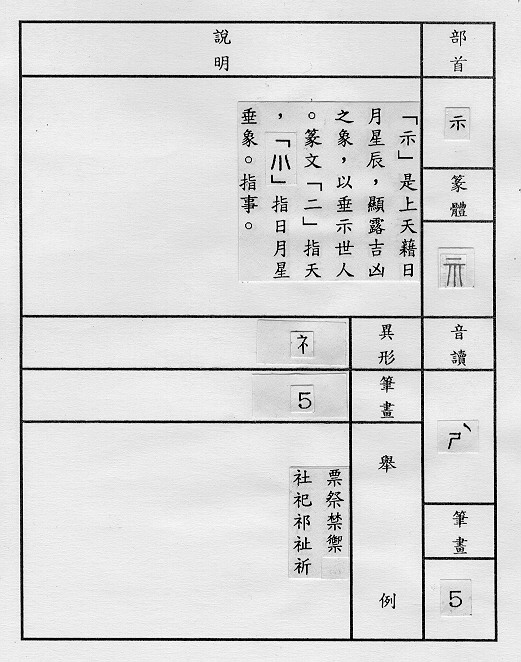 部首
示
篆體
音讀
ㄕˋ
筆畫
5
說明
「示」是上天藉日
月星辰，顯露吉凶
之象，以垂示世人
。篆文「二」指天
，「小」指日月星
垂象。指事。
異形
礻
筆畫
5
舉例
票祭禁禦
社祀祁祉祈